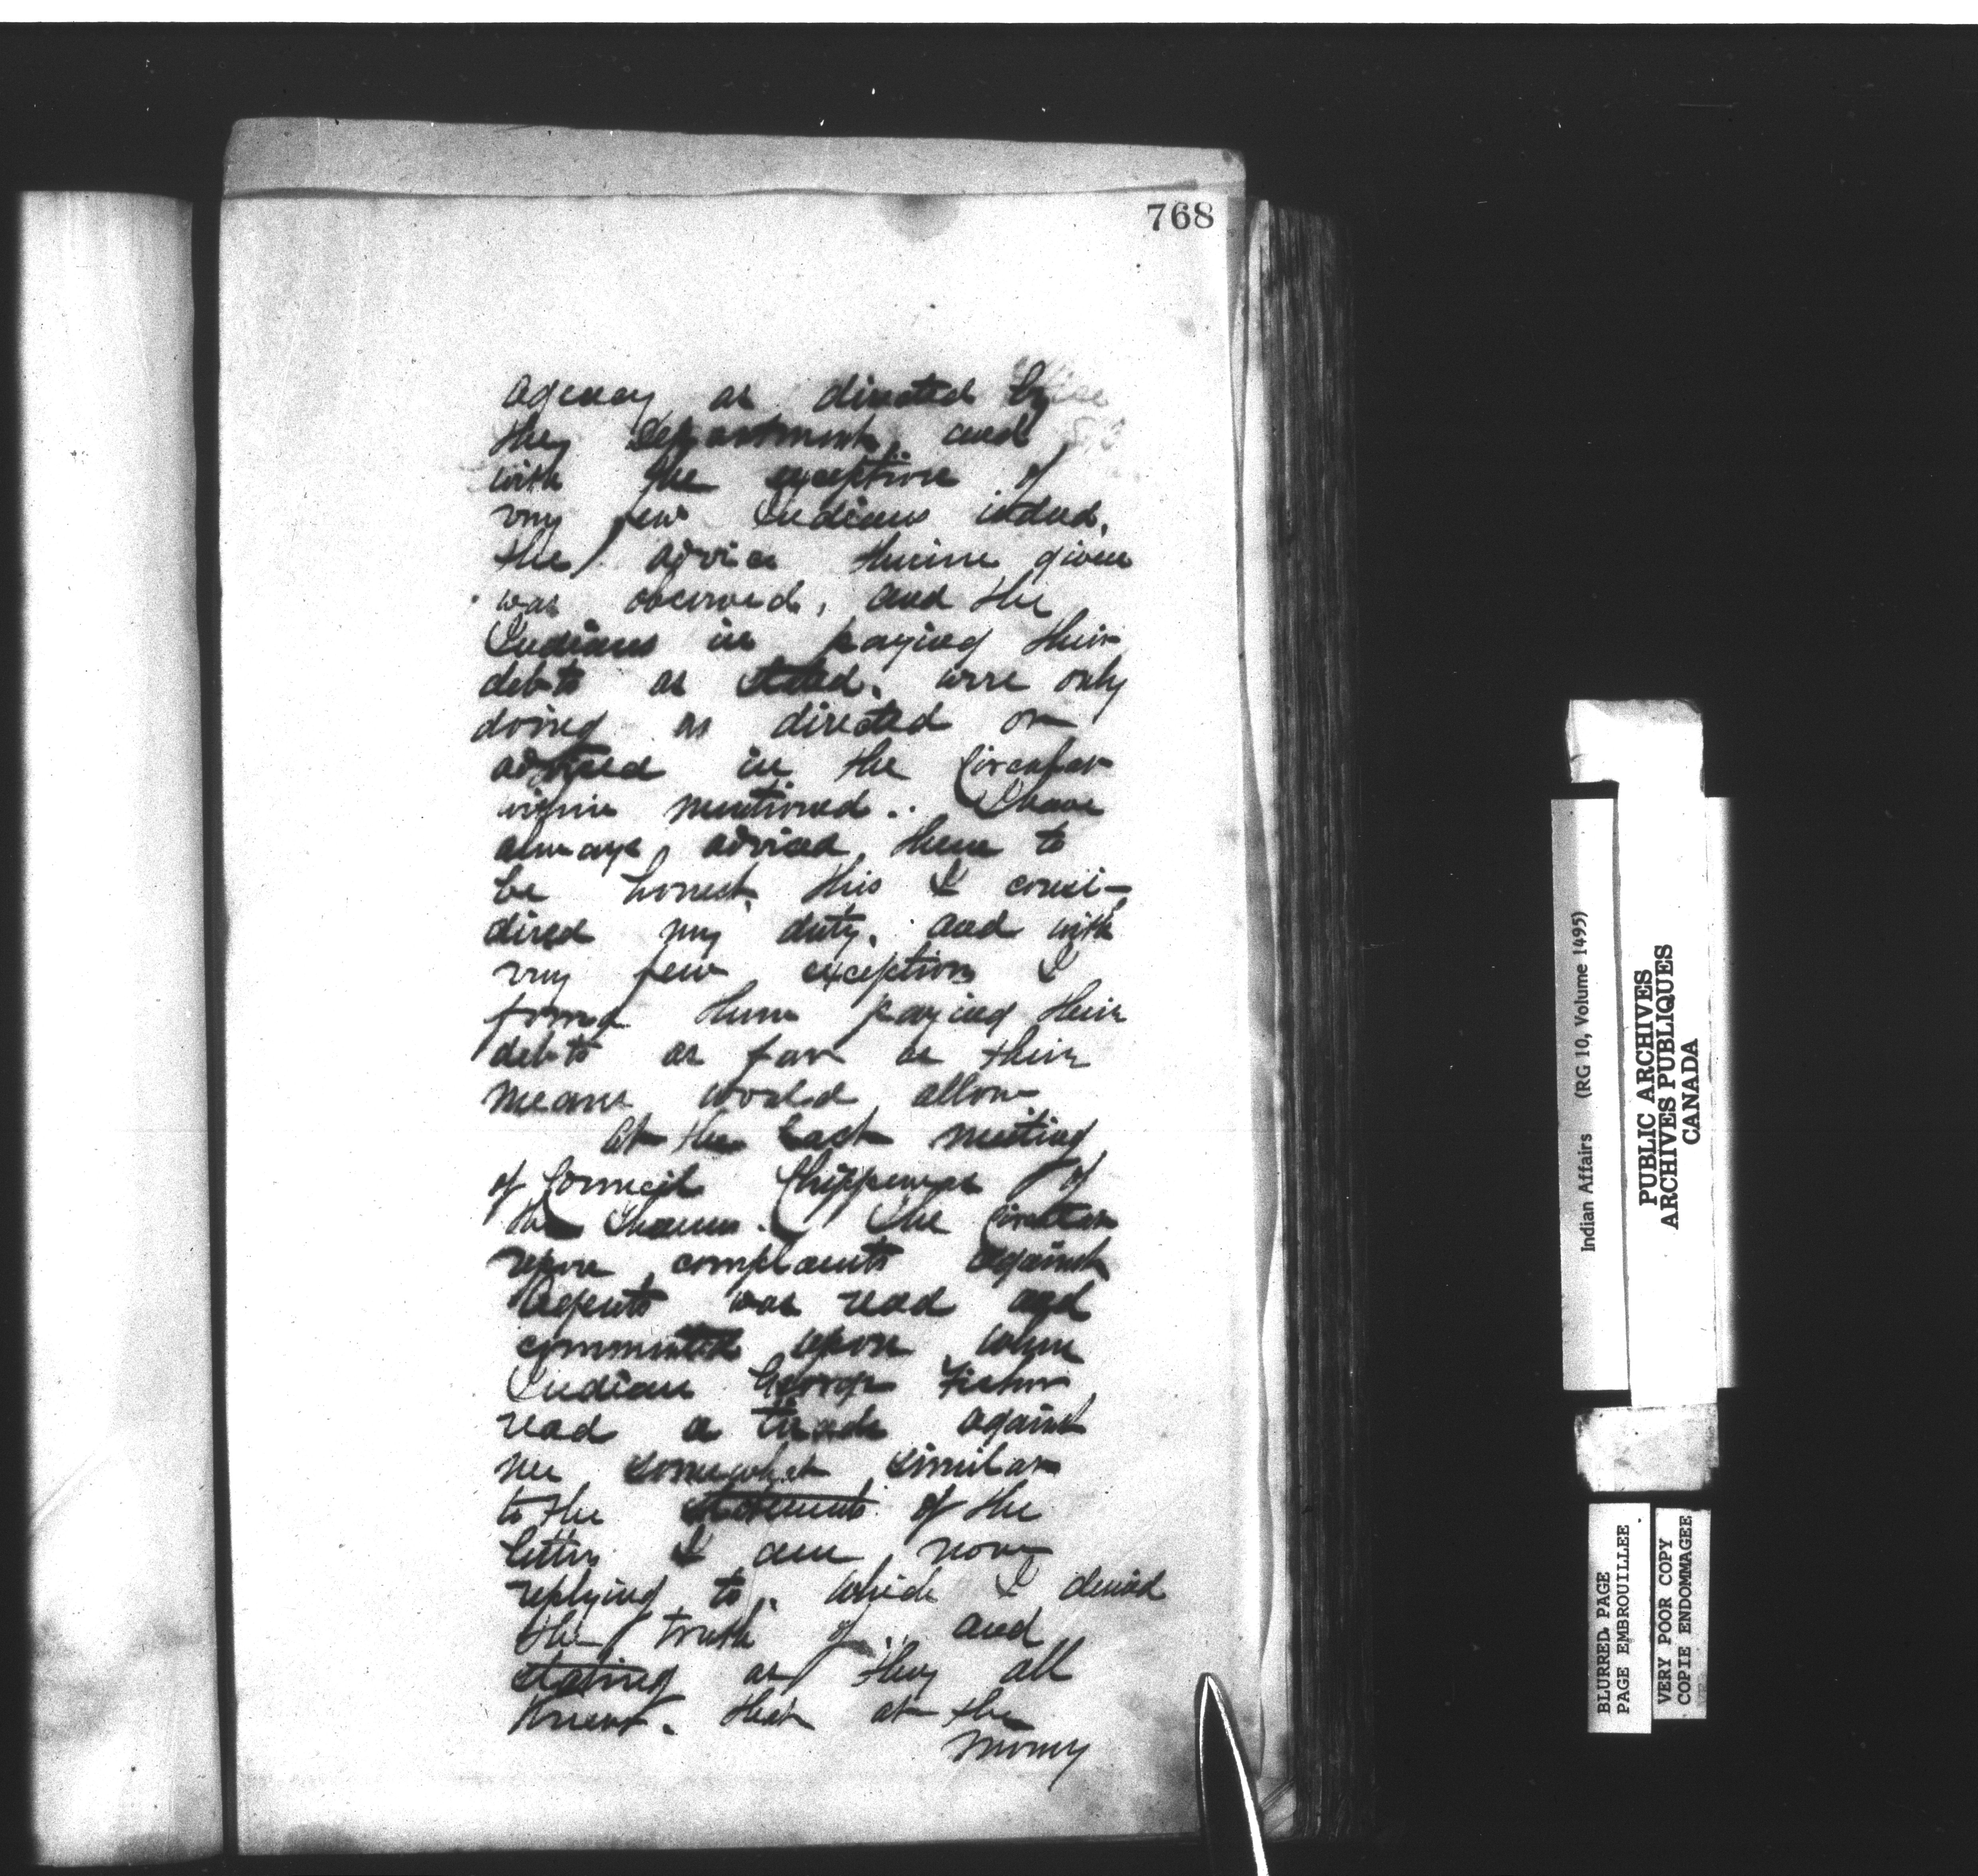 768
Agency as directed by
the Department, and
with the exception of
very few Indians indeed,
the advice therein given
was observed, and the
Indians in paying their
debts as stated, were only
doing as directed or
advised in the Circular
within mentioned. I have
always advised them to
be honest, this I consi-
dered my duty, and with
very few exceptions I
found them paying their
debts as far as their
means would allow
At the last meeting
of Council Chippewas of
the Thames. The Circular
upon complaints against
Agents was read and
commented upon when
Indian George Fisher
read a tirade against
me somewhat similar
to the statements of the
letter I am now
replying to, which I denied
the truth of, and
stating as they all
knew, that at the
money
Indian Affairs (RG 10, Volume 1495)
PUBLIC ARCHIVES
ARCHIVES PUBLIQUES
CANADA
BLURRED PAGE
PAGE EMBROUILLEE
VERY POOR COPY
COPIE ENDOMMAGEE